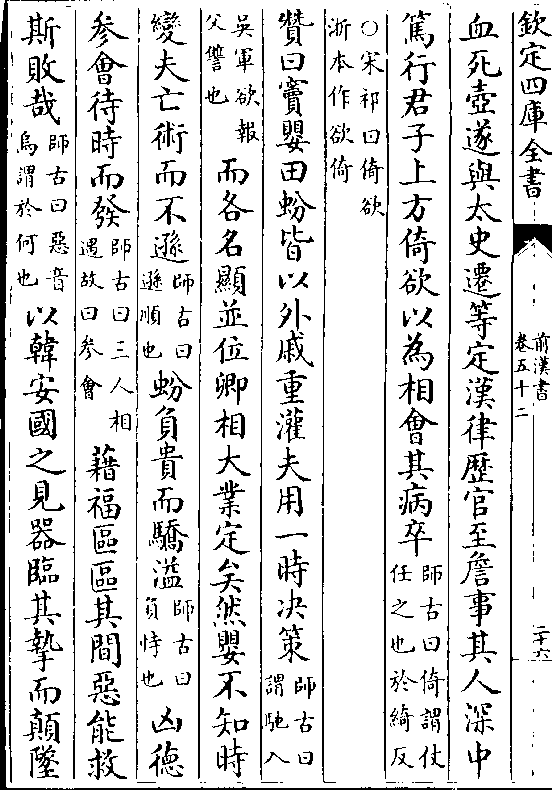 欽定四庫全書
前漢書
卷五十二
二十六
血死壺遂與太史遷等定漢律歷官至詹事其人深中
篤行君子上方倚欲以為相會其病卒師古曰倚謂仗任之也於綺反
○宋祁曰倚欲浙本作欲倚
贊曰竇嬰田蚡皆以外戚重灌夫用一時決策師古曰謂馳入
吳軍欲報父讐也而各名顯並位卿相大業定矣然嬰不知時
變夫亡術而不遜師古曰遜順也蚡負貴而驕溢師古曰負恃也凶德
參會待時而發師古曰三人相遇故曰參會藉福區區其間惡能救
斯敗哉師古曰惡音烏謂於何也以韓安國之見器臨其摯而顛墜